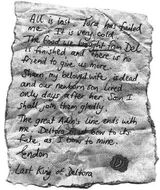 All is lost. Tora has failed
me. It is very cold.
The food we brought from Del
is finished and there is no
friend to give us more.
Sharn, my beloved wife, is dead
and our newborn son lived
only days after her. Soon I
shall join them gladly.
The great Adin's line ends with
me. Deltora must bow to its
fate, as I bow to mine.
Endon
Last King of Deltora